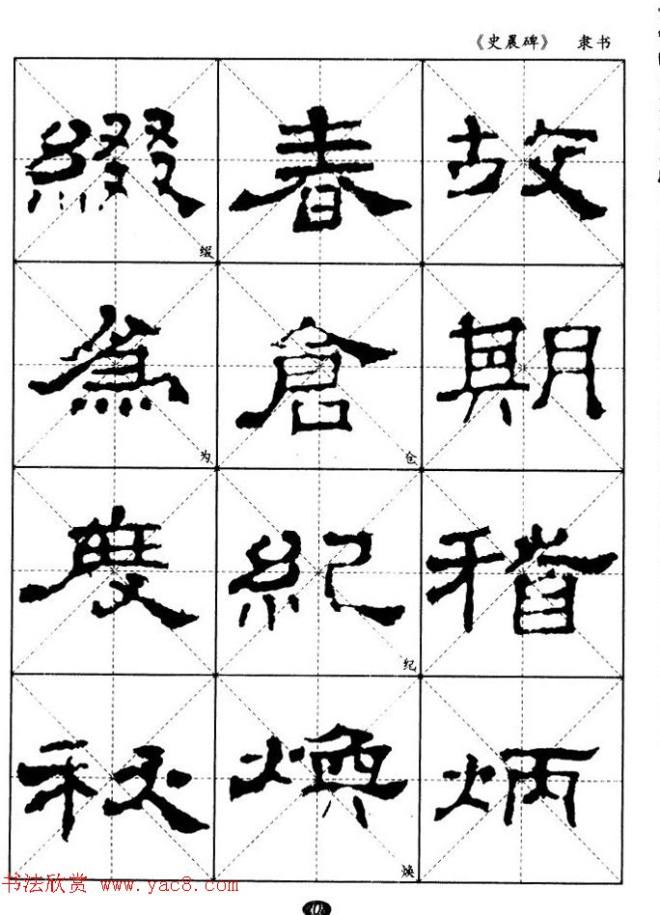 《史晨碑》 隶书
故
期
稽
炳
春
倉
仓
紀
纪
煥
焕
綴
缀
為
为
度
秋
书法欣赏 www.yac8.com